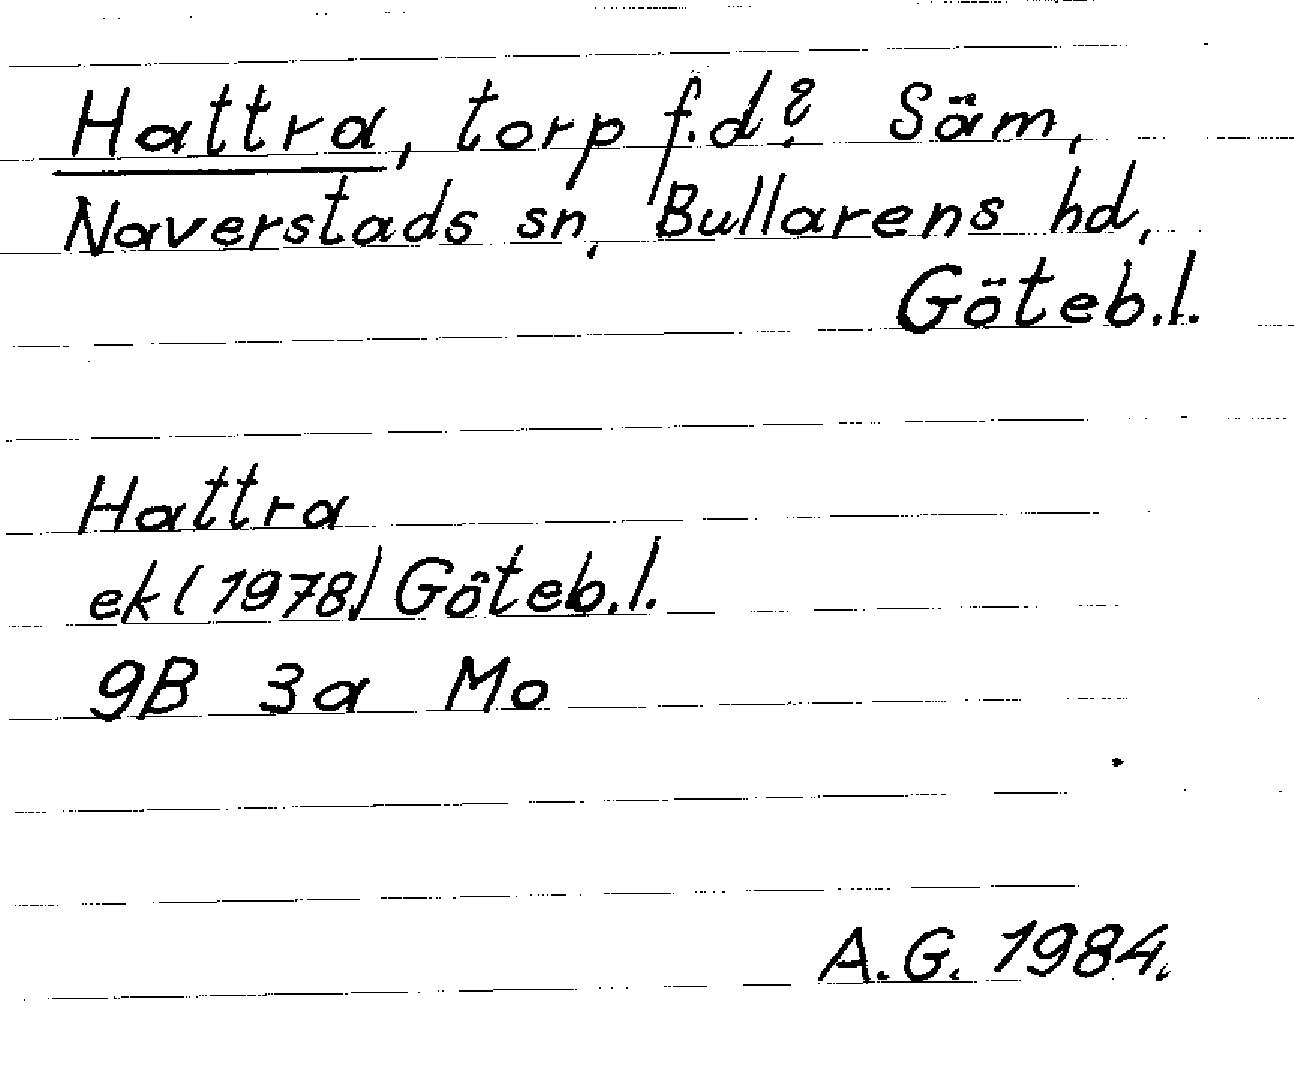 Hattra, torp f.d? Säm,
Naverstads sn. Bullarens hd,
Göteb.l.
Hattra
ek (1978) Göteb.l.
9B 3a Mo
A.G. 1984.